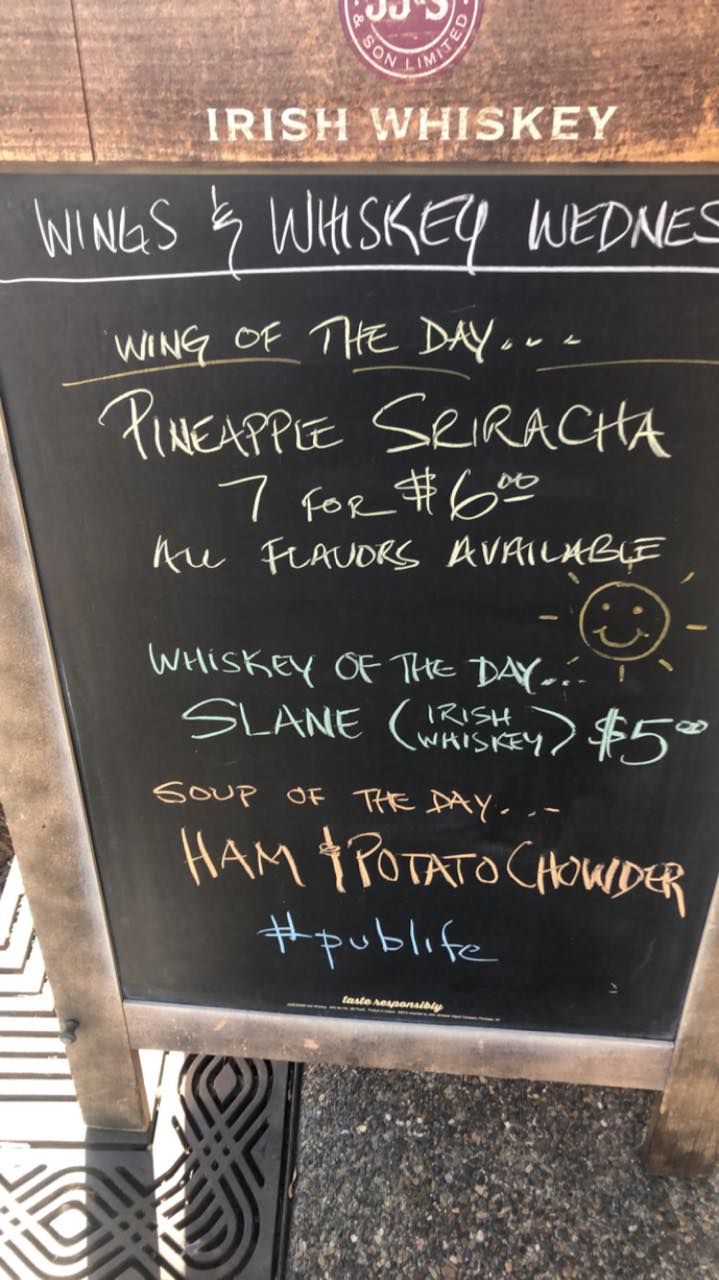 JJ&S
& SON LIMITED
IRISH WHISKEY
WINGS & WHISKEY WEDNES
WING OF THE DAY...
PINEAPPLE SRIRACHA
7 FOR $6.00
ALL FLAVORS AVAILABLE
WHISKEY OF THE DAY...
SLANE (IRISH WHISKEY) $5.00
SOUP OF THE DAY...
HAM & POTATO CHOWDER
#publife
taste responsibly